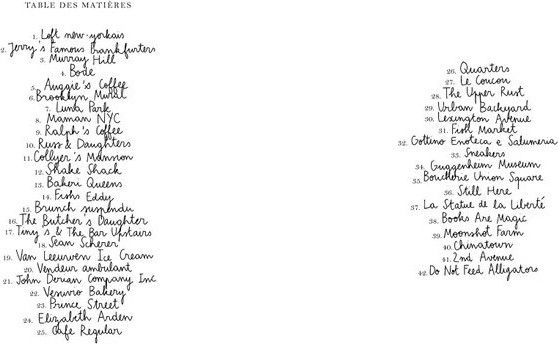 TABLE DES MATIÈRES
1. Loft new-yorkais
2. Jerry's Famous Frankfurters
3. Murray Hill
4. Bode
5. Auggie's Coffee
6. Brooklyn Mural
7. Luna Park
8. Maman NYC
9. Ralph's Coffee
10. Russ & Daughters
11. Collyer's Mansion
12. Shake Shack
13. Bakeri Queens
14. Fishs Eddy
15. Brunch suspendu
16. The Butcher's Daughter
17. Tiny's & The Bar Upstairs
18. Sean Scherer
19. Van Leeuwen Ice Cream
20. Vendeur ambulant
21. John Derian Company Inc
22. Vesuvio Bakery
23. Prince Street
24. Elizabeth Arden
25. Cafe Regular
26. Quarters
27. Le Coucou
28. The Upper Rust
29. Urban Backyard
30. Lexington Avenue
31. Fish Market
32. Gottino Enoteca e Salumeria
33. Sneakers
34. Guggenheim Museum
35. Boucherie Union Square
36. Still Here
37. La Statue de la Liberté
38. Books Are Magic
39. Moonshot Farm
40. Chinatown
41. 2nd Avenue
42. Do Not Feed Alligators